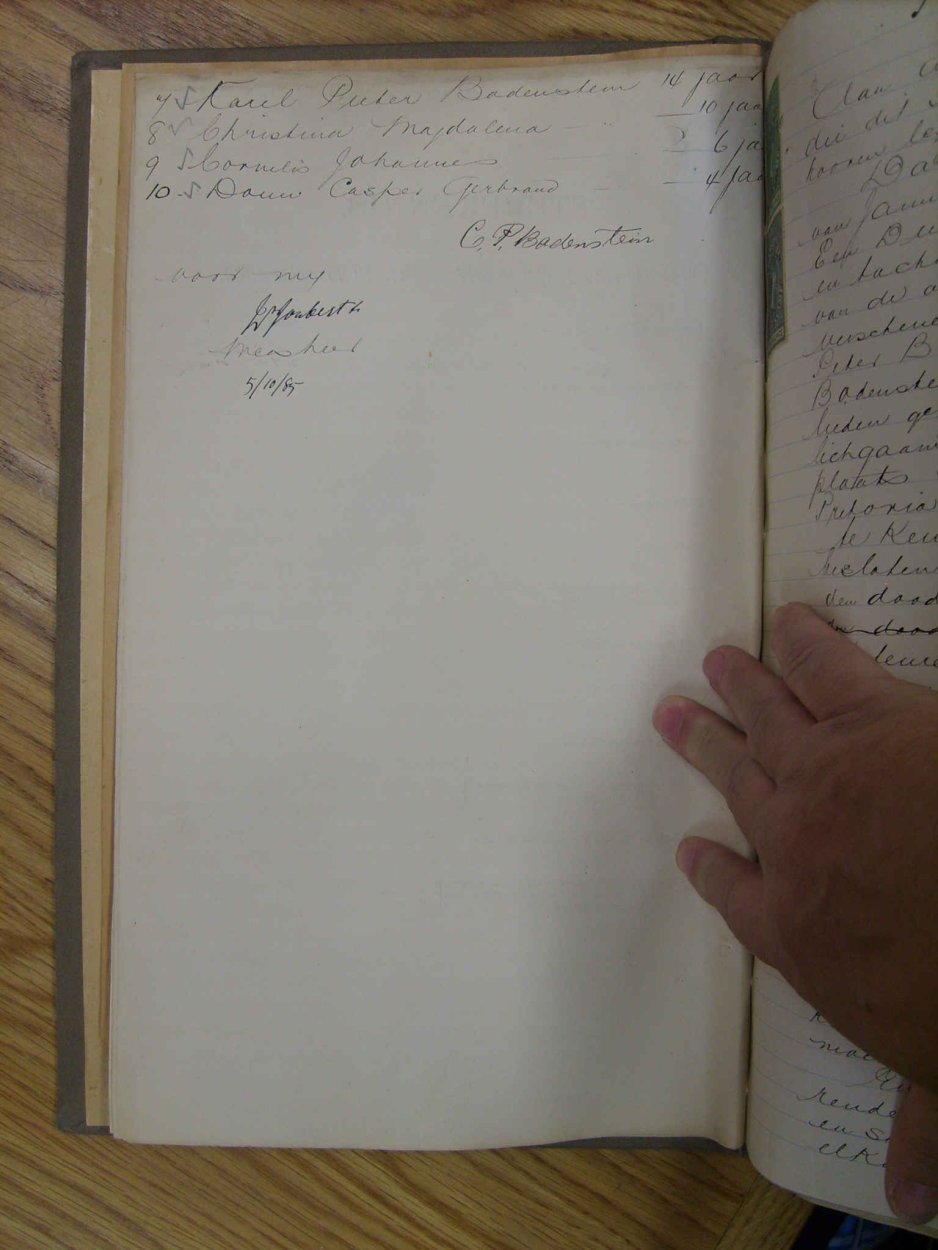 7 Karel Pieter Badenstein 14 jaar
8 Christina Majdalena 10 jaa
9 Cornelis Johannes 6 ja
10 Douw Casper Gerbrand 4 jaa
C. P. Badenstein
voor my
Joubert
5/10/85
Aan
die dit
hooren le
Da
van Janu
Een Du
en tach
van de
verschene
Pieter B
Badenste
lieden ge
lichgaam
plaats
Pretoria
te
besloten
den dood
en s
elk